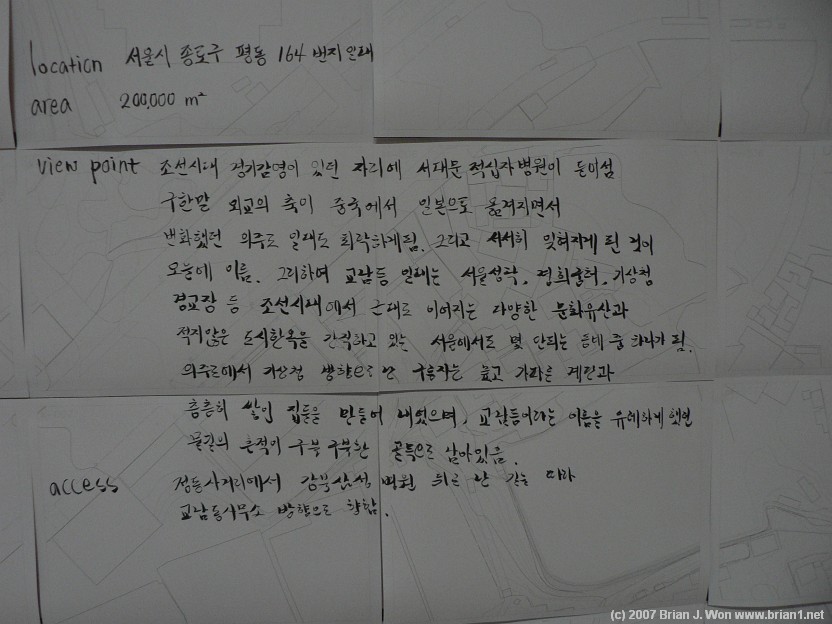 location 서울시 종로구 평동 164 번지 일대
area 200,000 m²
view point 조선시대 경기감영이 있던 자리에 서대문 적십자병원이 들어섬
구한말 외교의 축이 중국에서 일본으로 옮겨지면서
번화했던 의주로 일대도 쇠락하게됨. 그리고 서서히 잊혀지게 된 것이
오늘에 이름. 그리하여 교남동 일대는 서울성곽, 경희궁터, 기상청
경교장 등 조선시대에서 근대로 이어지는 다양한 문화유산과
적지않은 도시한옥을 간직하고 있는 서울에서도 몇 안되는 동네 중 하나가 됨.
의주로에서 기상청 방향으로 난 구릉지는 높고 가파른 계단과
층층히 쌓인 집들을 만들어 내었으며, 교남동이라는 이름을 유래하게 했던
물길의 흔적이 구불구불한 골목으로 남아있음.
access 정동사거리에서 강북삼성 병원 뒤로 난 길을 따라
교남동사무소 방향으로 향함.
(c) 2007 Brian J. Won www.brian1.net